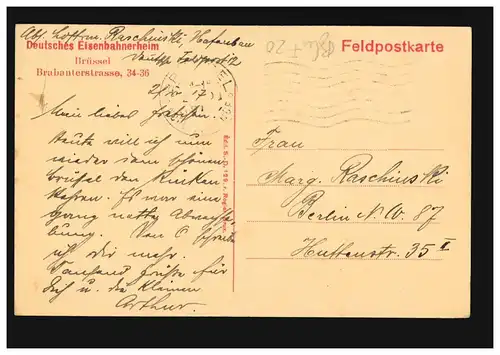 Abs. Raschinski, Hafenbau
Deutsches Eisenbahnerheim
Deutsche Feldpost 12
Brüssel
Brabanterstrasse, 34-36
Feldpostkarte
17
Mein liebes
Heute will ich nun
wieder dem schönen
Brüssel den Rücken
kehren. Es war eine
ganz nette Abwechs-
lung. Von O. schreibe
ich Dir mehr.
Tausend Grüße für
Dich u. die Kleinen
Arthur.
Frau
Marg. Raschinski
Berlin N.W. 87
Huttenstr. 35 II